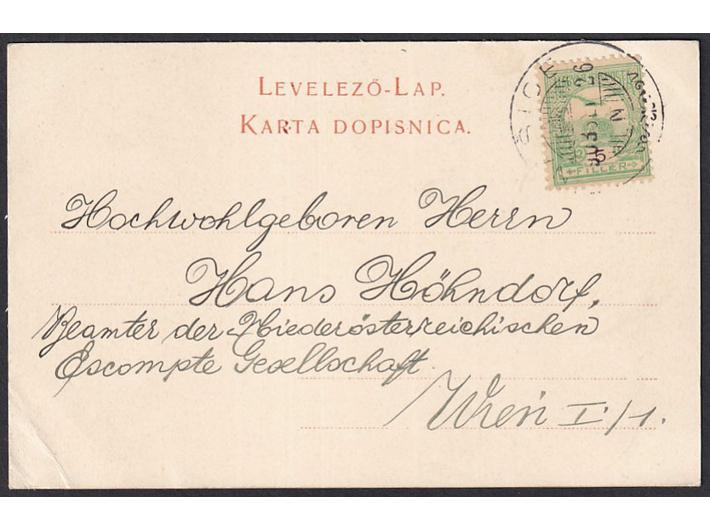 LEVELEZŐ-LAP.
KARTA DOPISNICA.
5
FILLER
Hochwohlgeboren Herrn
Hans Höhndorf,
Beamter der Niederösterreichischen
Escompte Gesellschaft
Wien I./1.